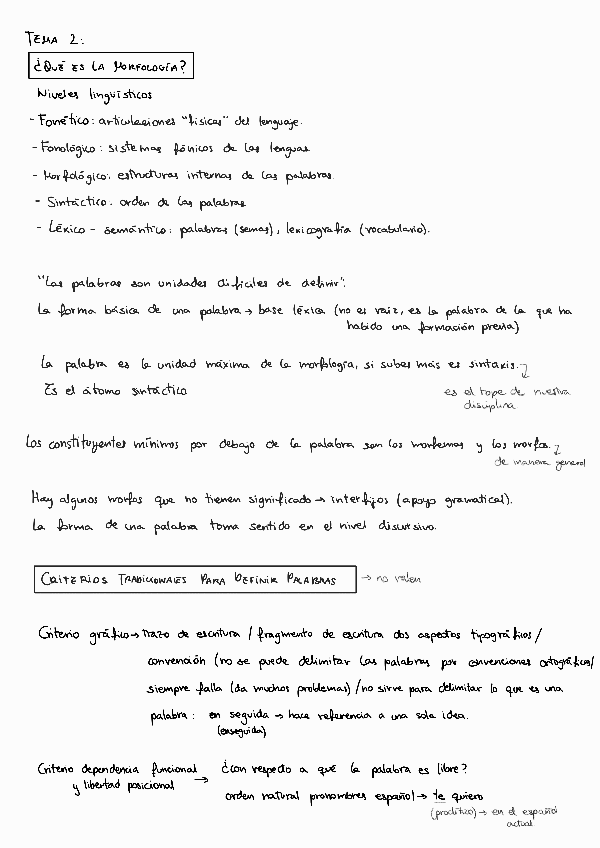 TEMA 2:
¿QUÉ ES LA MORFOLOGÍA?
Niveles lingüísticos
- Fonético: articulaciones "físicas" del lenguaje.
- Fonológico: sistemas fónicos de las lenguas
- Morfológico: estructuras internas de las palabras.
- Sintáctico: orden de las palabras
- Léxico - semántico: palabras (semas), lexicografía (vocabulario).
"Las palabras son unidades difíciles de definir".
La forma básica de una palabra → base léxica (no es raíz, es la palabra de la que ha
habido una formación previa)
La palabra es la unidad máxima de la morfología, si subes más es sintaxis.
Es el átomo sintáctico
es el tope de nuestra
disciplina
Los constituyentes mínimos por debajo de la palabra son los morfemas y los morfos.
de manera general
Hay algunos morfos que no tienen significado → interfijos (apoyo gramatical).
La forma de una palabra toma sentido en el nivel discursivo.
CRITERIOS TRADICIONALES PARA DEFINIR PALABRAS → no valen
Criterio gráfico → trazo de escritura / fragmento de escritura dos aspectos tipográficos /
convención (no se puede delimitar las palabras por convenciones ortográficas) /
siempre falla (da muchos problemas) / no sirve para delimitar lo que es una
palabra: en seguida → hace referencia a una sola idea.
(enseguida)
Criterio dependencia funcional
y libertad posicional → ¿con respecto a qué la palabra es libre?
orden natural pronombres español → te quiero
(proclítico) → en el español
actual